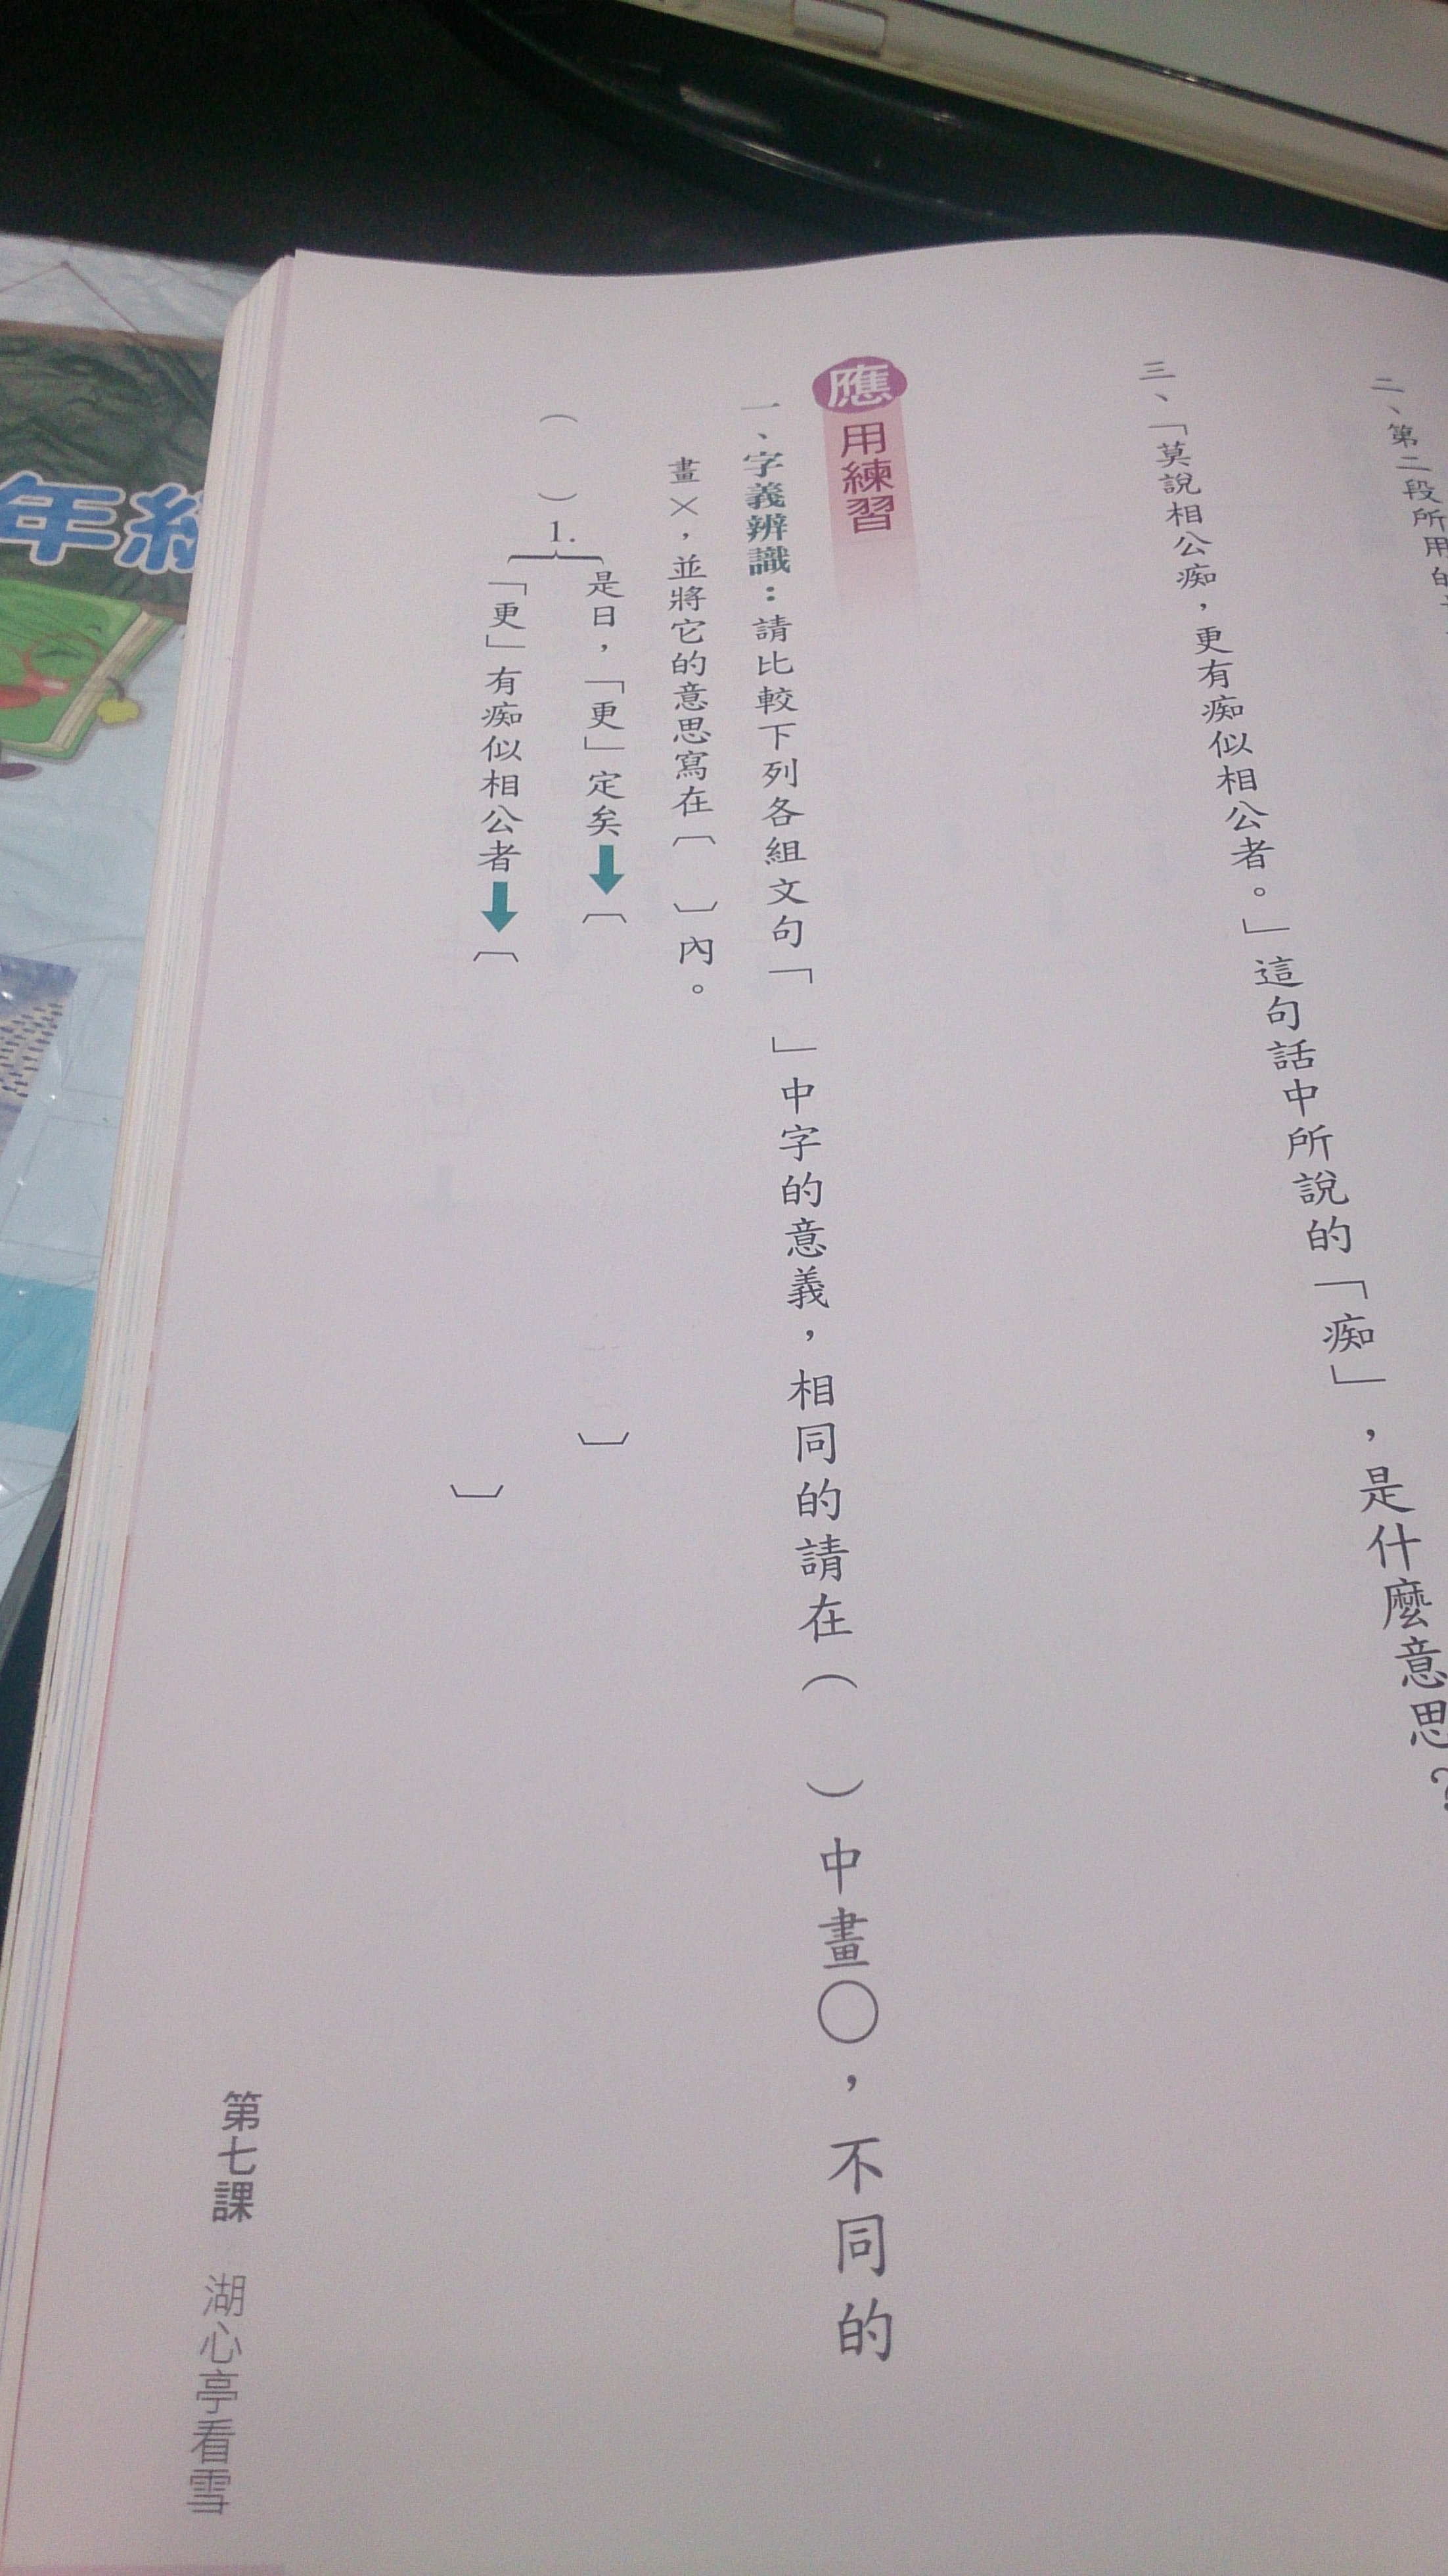 二、第二段所用的
三、「莫說相公痴，更有痴似相公者。」這句話中所說的「痴」，是什麼意思？
應用練習
一、字義辨識：請比較下列各組文句「　」中字的意義，相同的請在（　）中畫○，不同的
畫×，並將它的意思寫在〔　〕內。
（　）1.
是日，「更」定矣➡〔　〕
「更」有痴似相公者➡〔　〕
第七課　湖心亭看雪
年級